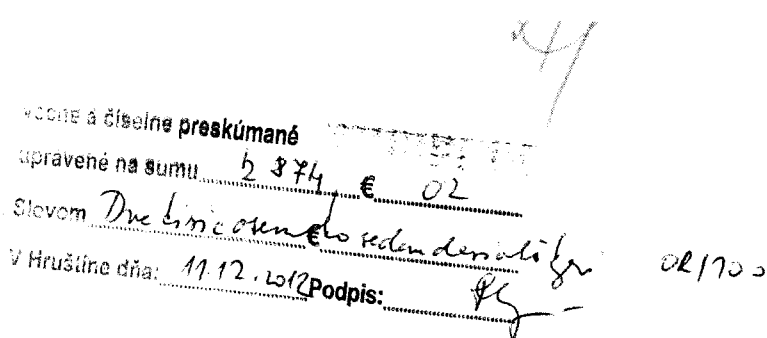 vecne a číselne preskúmané
upravené na sumu 2 874, € 02
Slovom Dve tisíc osemsto € sedemdesiatštyri 02/100
V Hruštíne dňa: 11.12.2012 Podpis: